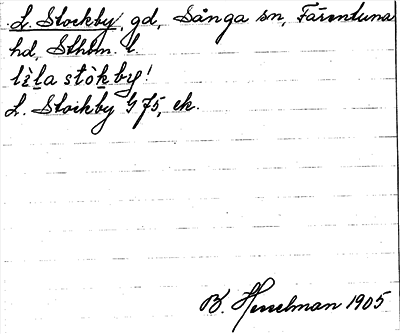 L. Stockby, gd, Sånga sn, Färentuna
hd, Sthlm. l.
lìla stòkby!
L. Stockby G 75, ek.
B. Hesselman 1905